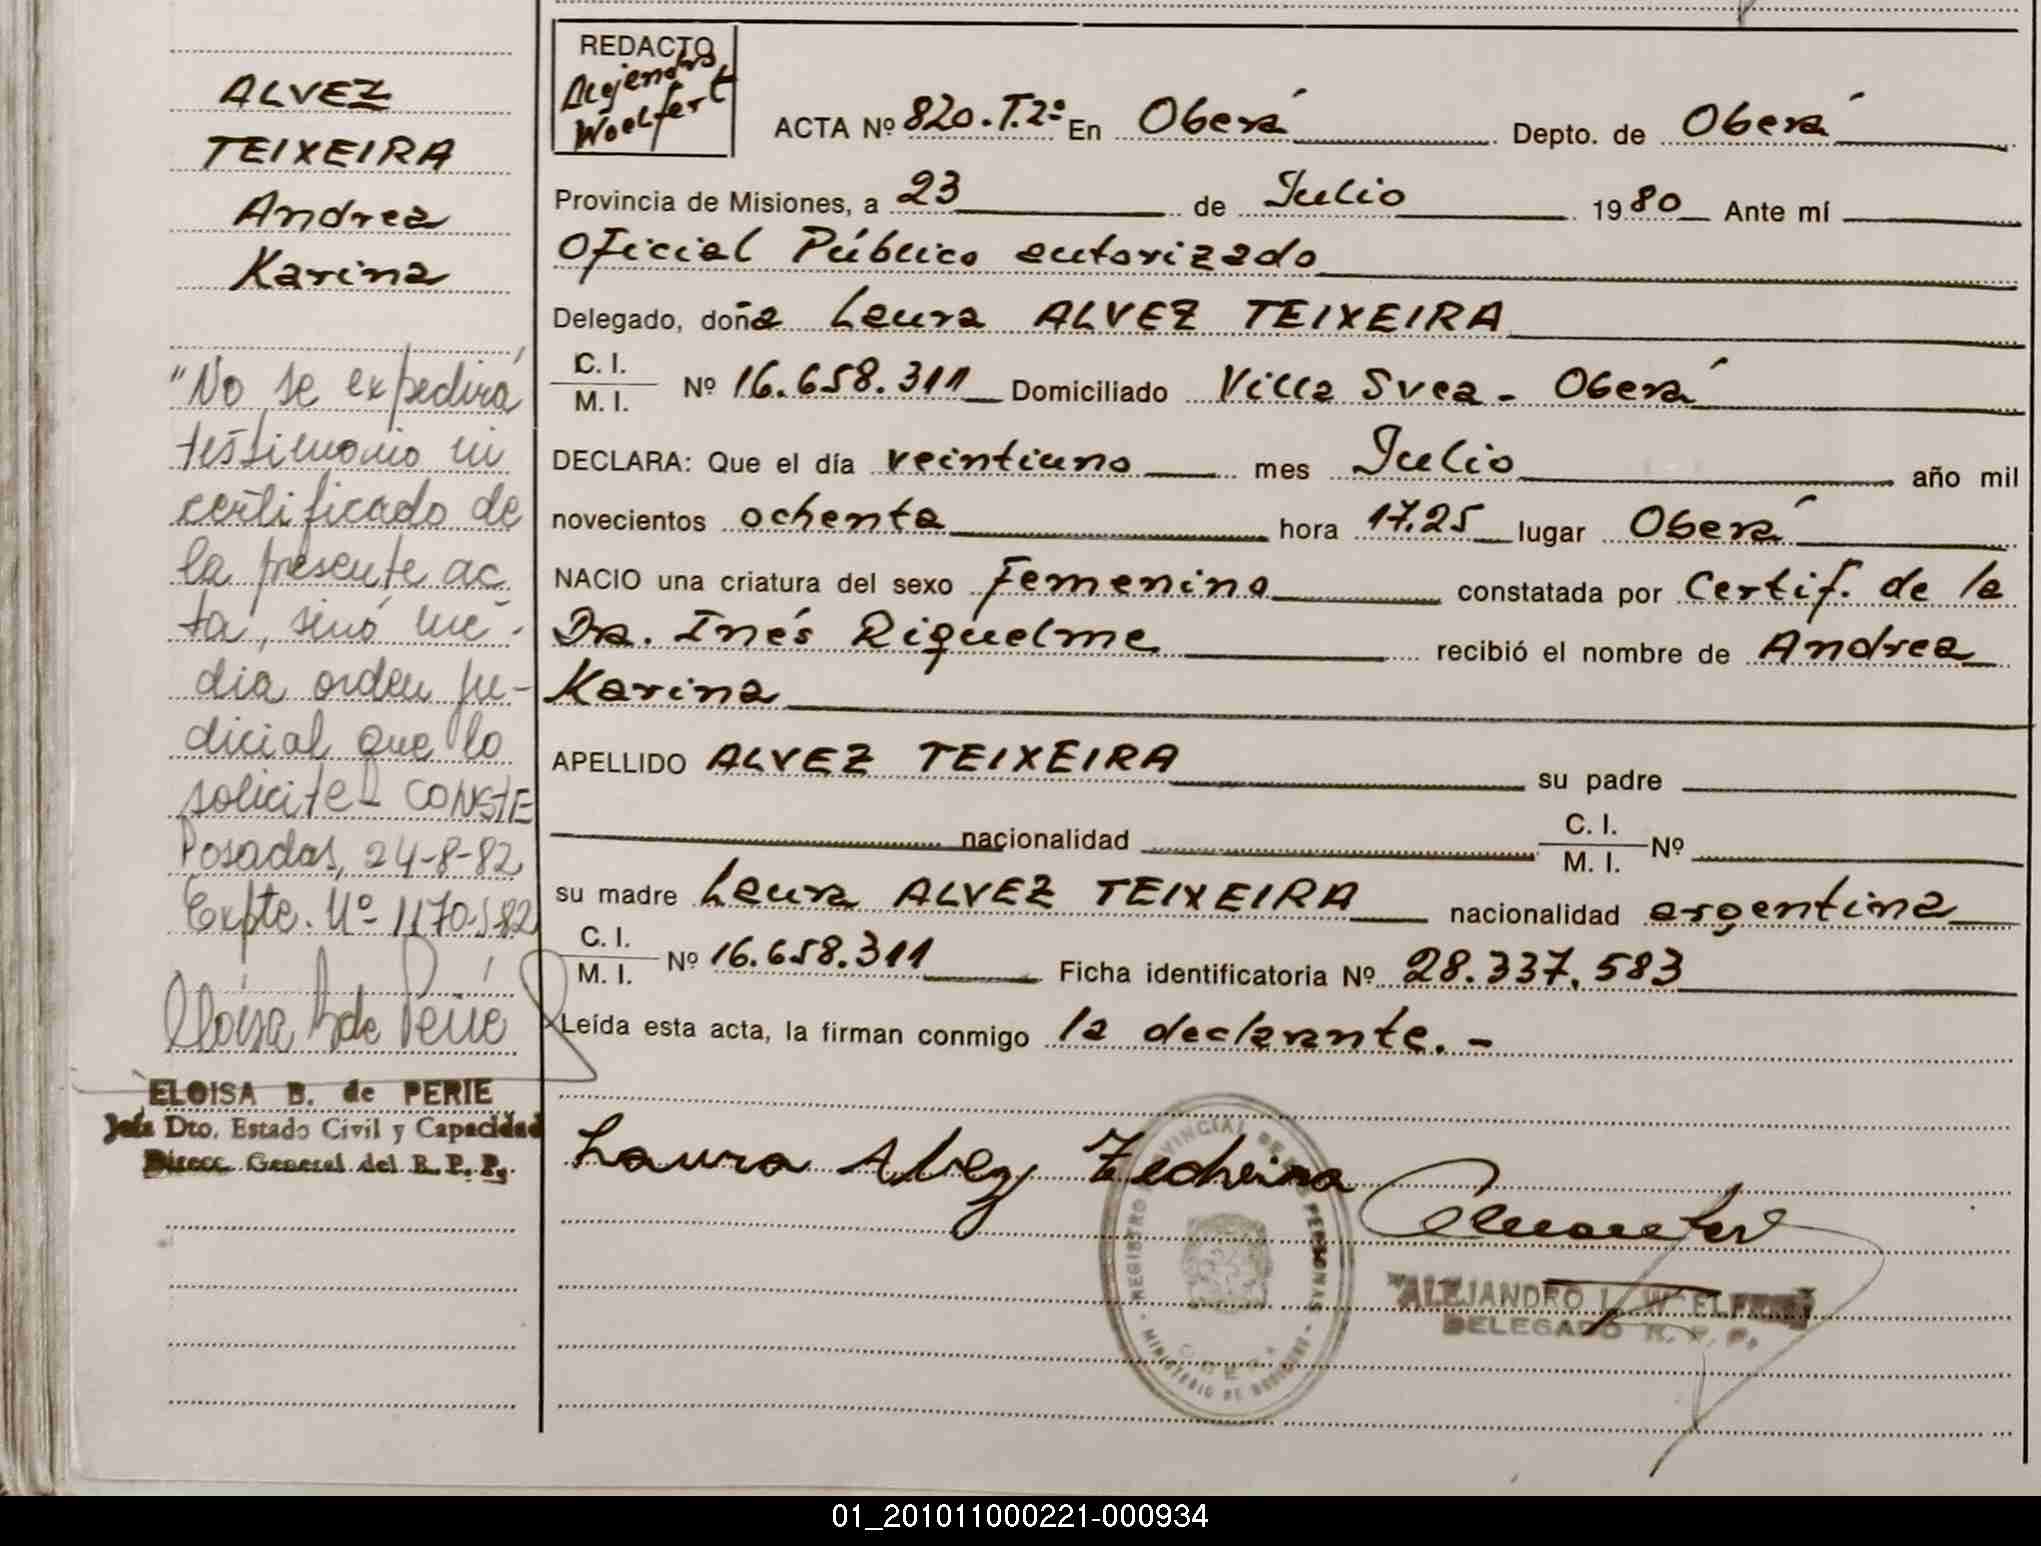 ALVEZ
TEIXEIRA
Andrea
Karina
"No se expedirá
testimonio ni
certificado de
la presente ac
ta, sinó me-
dia orden ju-
dicial que lo
solicite - CONSTE
Posadas, 24-8-82
Expte. Nº 1170-582
Eloisa B de Perié
ELOISA B. de PERIE
Jefa Dto. Estado Civil y Capacidad
Direcc. General del R. P. P.
REDACTO
Alejandro
Woelfert
ACTA Nº 820.T.2º En Oberá Depto. de Oberá
Provincia de Misiones, a 23 de Julio 1980 Ante mí
Oficial Público autorizado
Delegado, doña Laura ALVEZ TEIXEIRA
C. I.
M. I. Nº 16.658.311 Domiciliado Villa Svea - Oberá
DECLARA: Que el día veintiuno mes Julio año mil
novecientos ochenta hora 17.25 lugar Oberá
NACIO una criatura del sexo femenino constatada por Certif. de la
Dra. Inés Riquelme recibió el nombre de Andrea
Karina
APELLIDO ALVEZ TEIXEIRA su padre
nacionalidad C. I. M. I. Nº
su madre Laura ALVEZ TEIXEIRA nacionalidad argentina
C. I.
M. I. Nº 16.658.311 Ficha identificatoria Nº 28.337.583
Leída esta acta, la firman conmigo la declarante. -
Laura Alvez
REGISTRO PROVINCIAL DE LAS PERSONAS
MINISTERIO DE GOBIERNO
OBERA
ALEJANDRO L. WOELFERT
DELEGADO R. P. P.
01_201011000221-000934